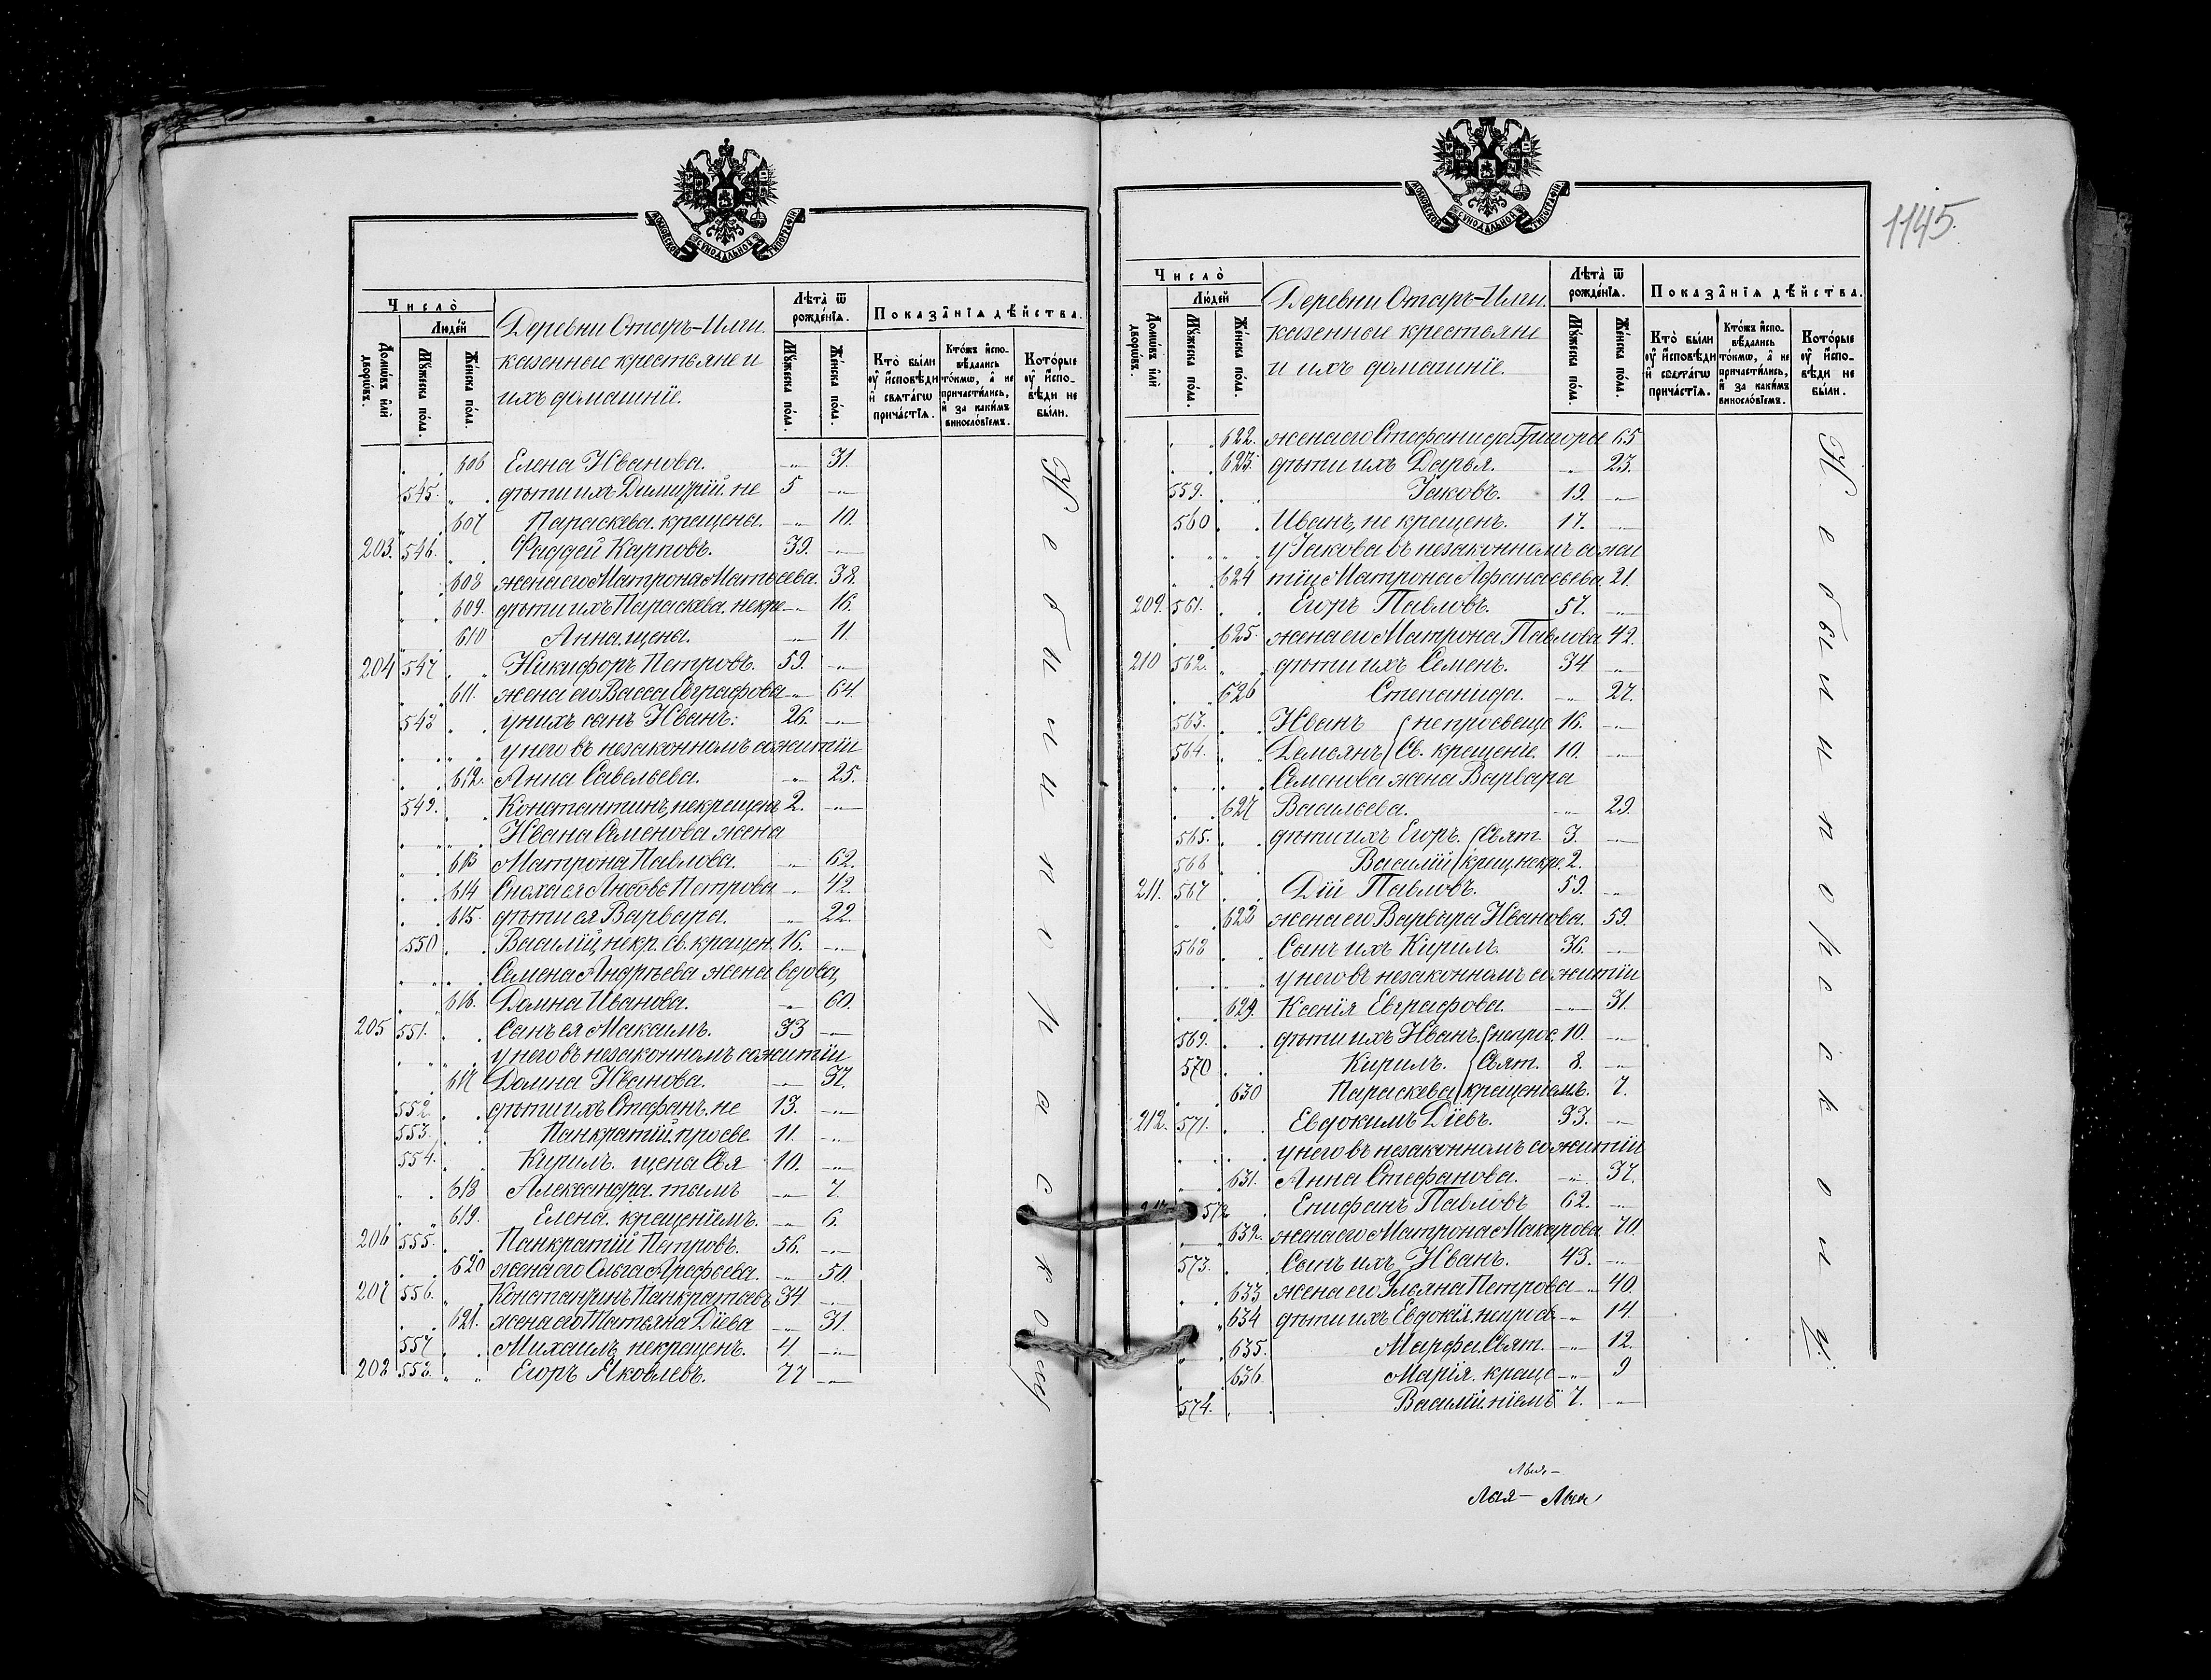 МОСКОВСКОЙ СѴНОДАЛЬНОЙ ТИПОГРАФІИ
Число̀
Люде́й
Домѡ́въ и҆лѝ дворѡ́въ.
Мꙋ́жеска по́ла.
Же́нска по́ла.
Деревни Старъ-Илги.
казенные крестьяне и
ихъ домашніе.
Лѣта̀ ѿ рожде́нїѧ.
Мꙋ́жеска по́ла.
Же́нска по́ла.
Показа̑нїѧ дѣ́йства.
Кто̀ бы́ли ᲂу҆ и҆сповѣ́ди и҆ свѧта́гѡ прича́стїѧ.
Кто́жъ и҆спо-вѣ́дались то́кмѡ, а҆ не причасти́лись, и҆ за каки́мъ виносло́вїемъ.
Кото́рые ᲂу҆ и҆спо-вѣ́ди не бы́ли.
606 Елена Иванова. -„- 31.
545. дѣти ихъ Димитрій. не 5 -„-
607 Параскева. крещены. -„- 10.
203. 546. Фаддей Карповъ. 39. -„-
608 жена его Матрона Матвеева. 38.
609. дѣти ихъ Параскева. некре -„- 16.
610 Анна. щены. -„- 11.
204 547 Никифоръ Петровъ. 59. -„-
611. жена его Васса Евграфова -„- 64.
548 у нихъ сынъ Иванъ: 26. -„-
у него въ незаконномъ сожитіи
612. Анна Савельева. -„- 25.
549. Константинъ, некрещенъ 2. -„-
Ивана Семенова жена
613 Матрона Павлова. -„- 62.
614 Сноха ея Любовь Петрова -„- 42.
615. дѣти ея Варвара. -„- 22.
550 Василій, некр. св. крещен. 16. -„-
Семена Андрѣева жена вдова,
616. Домна Иванова. -„- 60.
205 551. Сынъ ея Максимъ. 33 -„-
у него въ незаконномъ сожитіи
617 Домна Иванова. -„- 37.
552. дѣти ихъ Стефанъ. не 13. -„-
553. Панкратій. просве 11. -„-
554. Кирилъ. щена Свя 10. -„-
618 Александра. тымъ -„- 7.
619. Елена. крещеніемъ. -„- 6.
206 555. Панкратій Петровъ. 56. -„-
620 жена его Ольга Арефьева. -„- 50.
207 556. Константинъ Панкратьевъ 34. -„-
621. жена его Татьяна Діева -„- 31.
557 Михаилъ, некрещенъ. 4. -„-
208 558. Егоръ Яковлевъ. 77 -„-
Не были по расколу
1145.
МОСКОВСКОЙ СѴНОДАЛЬНОЙ ТИПОГРАФІИ
Число̀
Люде́й
Домѡ́въ и҆лѝ дворѡ́въ.
Мꙋ́жеска по́ла.
Же́нска по́ла.
Деревни Старъ-Илги.
казенные крестьяне
и ихъ домашніе.
Лѣта̀ ѿ рожде́нїѧ.
Мꙋ́жеска по́ла.
Же́нска по́ла.
Показа̑нїѧ дѣ́йства.
Кто̀ бы́ли ᲂу҆ и҆сповѣ́ди и҆ свѧта́гѡ прича́стїѧ.
Кто́жъ и҆спо-вѣ́дались то́кмѡ, а҆ не причасти́лись, и҆ за каки́мъ виносло́вїемъ.
Кото́рые ᲂу҆ и҆спо-вѣ́ди не бы́ли.
622. жена его Стефанида Григорье 65
623. дѣти ихъ Дарья. -„- 23.
559. Іаковъ. 19. -„-
560 Иванъ, не крещенъ. 17. -„-
у Іакова въ незаконномъ сожи
624 тіи Матрона Афанасьева. 21.
209. 561. Егоръ Павловъ. 57. -„-
625. жена его Матрона Павлова 42.
210 562. дѣти ихъ Семенъ. 34 -„-
626 Степанида. -„- 27.
563. Иванъ не просвеще 16. -„-
564. Демьянъ Св. крещеніе. 10. -„-
Семенова жена Варвара
627 Васильева. -„- 29.
565. дѣти ихъ Егоръ. Свят. 3. -„-
566 Василій крещ. некре 2.
211. 567 Дій Павловъ. 59. -„-
628 жена его Варвара Иванова. 59.
568 Сынъ ихъ Кирилъ. 36. -„-
у него въ незаконномъ сожитіи
629. Ксенія Евграфова. -„- 31.
569. дѣти ихъ Иванъ. непрос. 10. -„-
570 Кирилъ. Свят. 8. -„-
630 Параскева крещеніемъ. 7.
212. 571. Евдокимъ Діевъ. 33. -„-
у него въ незаконномъ сожитіи
631. Анна Стефанова. -„- 37.
572 Епифанъ Павловъ 62. -„-
632. жена его Матрона Макарова. 70.
573. Сынъ ихъ Иванъ. 43. -„-
633 жена его Ульяна Петрова -„- 40.
634 дѣти ихъ Евдокія. непросв -„- 14.
635. Марфа. Свят. -„- 12.
636. Марія. креще -„- 9
574. Василій. ніемъ 7. -„-
Не были по расколу.